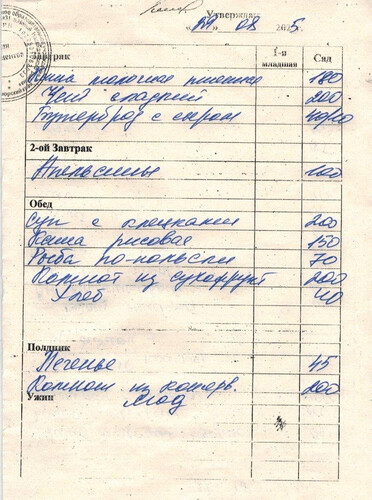 Утверждаю
08 2025
Завтрак 1-я младшая Сад
Каша молочная пшенная 180
Чай сладкий 200
Бутерброд с сыром 40/10
2-ой Завтрак
Апельсины 100
Обед
Суп с клецками 200
Каша рисовая 150
Рыба по-польски 70
Компот из сухофрукт 200
Хлеб 40
Полдник
Печенье 45
Компот из консерв. 200
Ужин